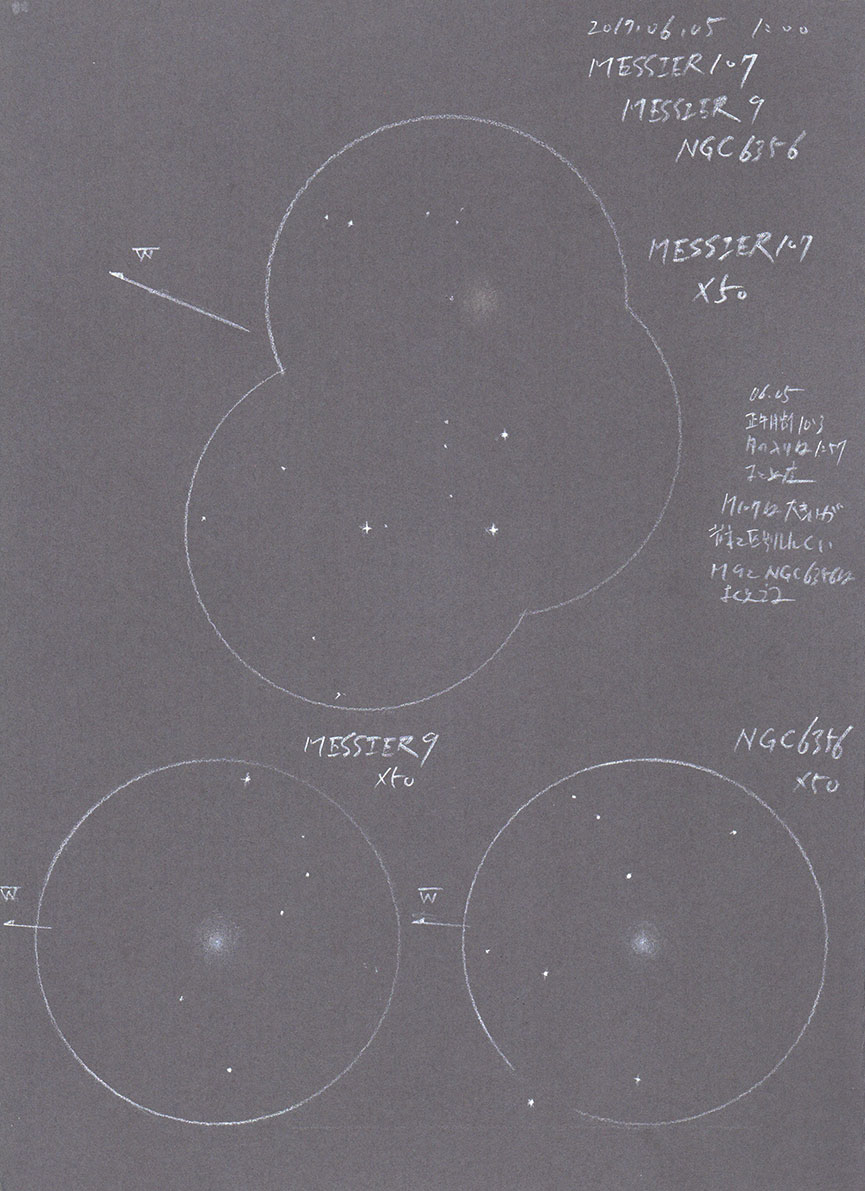 2017.06.05 1:00
MESSIER107
MESSIER 9
NGC6356
MESSIER107
×50
W
06.05
正午月齢10.3
月の入りは1:57
M107は大きいが
M9とNGC6356は
MESSIER9
×50
NGC6356
×50
W
W